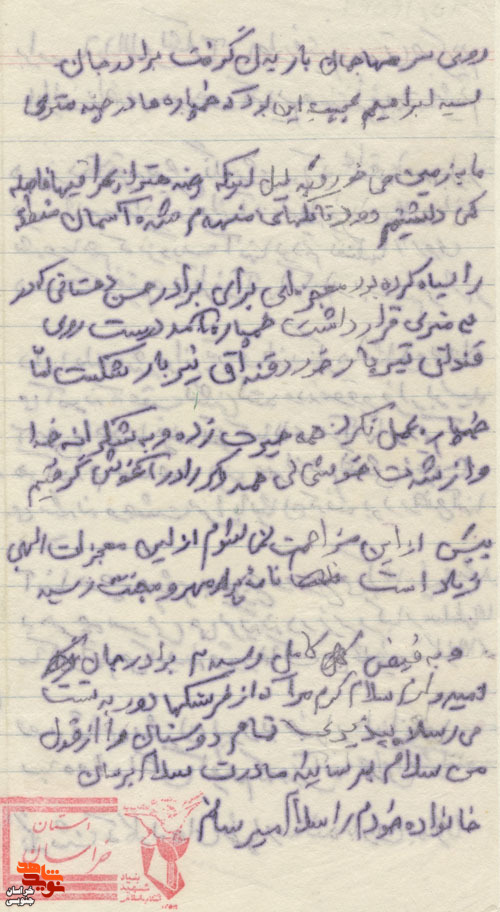 روی سر مهاجمان باریدن گرفت برادر جان
سید ابراهیم عجیب این بود که خمپاره ها در چند متری
ما به زمین می خورد به دلیل اینکه چند متر از عراقیها فاصله
نمی داشتیم دود تانکهای منهدم شده آسمان منطقه
را سیاه کرده بود معجزه ای برای برادر حسن دهستانی که در
متری قرار داشت خمپاره آمد درست روی
قنداق تیربار خورد قنداق تیربار شکست اما
خمپاره عمل نکرد همه حیرت زده و به شکرانه خدا
و از شدت خوشحالی همدیگر را در آغوش گرفتیم
بیش از این مزاحمت نمی شوم از این معجزات الهی
زیاد است نامه پر از مهر و محبت رسید
و به فیض کامل رسیدم برادر جان
امیدوارم سلام گرم مرا که از فرسنگها دور به دستت
می رسد بپذیری تمام دوستان را از قول
من سلام برسانید مادرت سلام برسان
خانواده خودم را سلام میرسانم
استان
خراسان
بنیاد
شهید
انقلاب اسلامی
نوید شاهد
خراسان
جنوبی